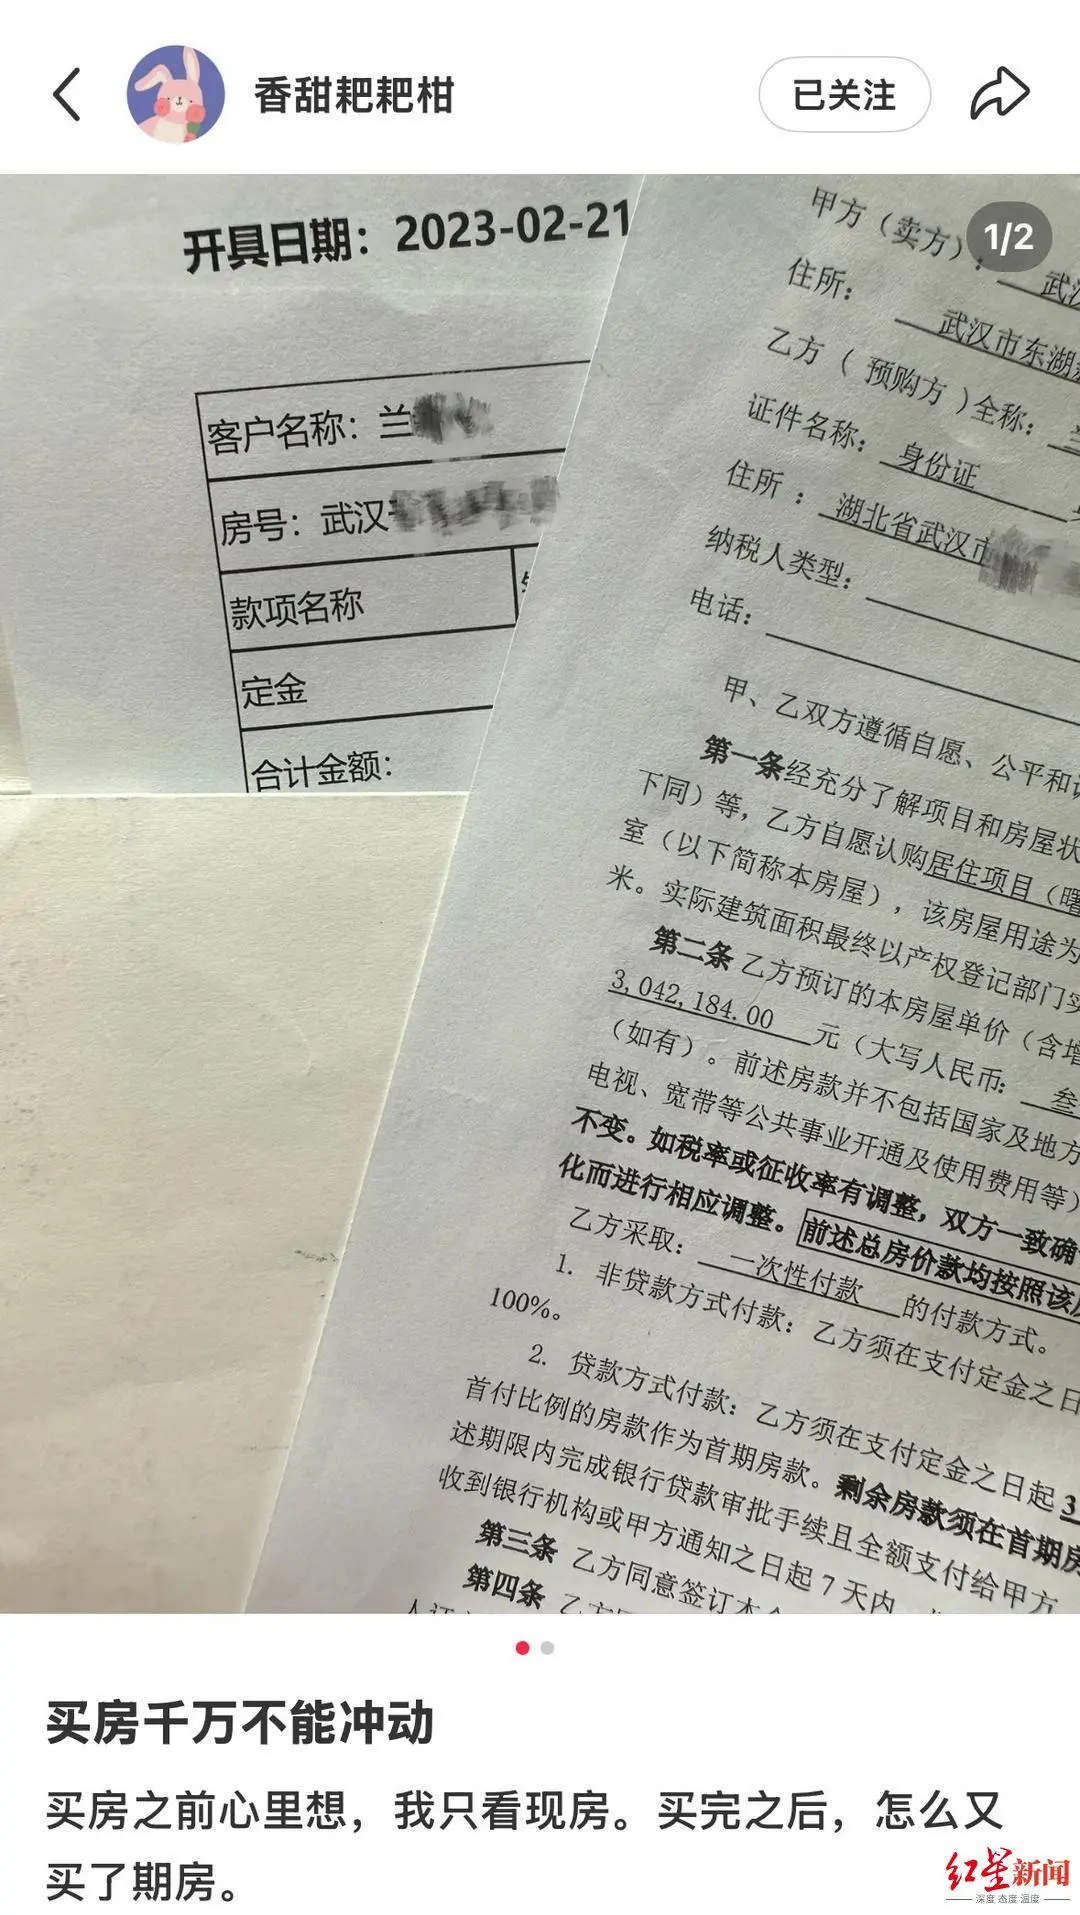 香甜耙耙柑
已关注
1/2
开具日期：2023-02-21
客户名称：兰
房号：武汉
款项名称
定金
合计金额：
甲方（卖方）：武汉
住所：武汉市东湖
乙方（预购方）全称：
证件名称：身份证
住所：湖北省武汉市
纳税人类型：
电话：
甲、乙双方遵循自愿、公平和
第一条经充分了解项目和房屋状
下同）等，乙方自愿认购居住项目（曙
室（以下简称本房屋），该房屋用途为
米。实际建筑面积最终以产权登记部门实
第二条 乙方预订的本房屋单价（含增
3,042,184.00 元（大写人民币：叁
（如有）。前述房款并不包括国家及地方
电视、宽带等公共事业开通及使用费用等）
不变。如税率或征收率有调整，双方一致确
化而进行相应调整。前述总房价款均按照该
乙方采取：一次性付款 的付款方式。
1. 非贷款方式付款：乙方须在支付定金之日
100%。
2. 贷款方式付款：乙方须在支付定金之日起 3
首付比例的房款作为首期房款。剩余房款须在首期房
述期限内完成银行贷款审批手续且全额支付给甲方
收到银行机构或甲方通知之日起 7 天内
第三条 乙方同意签订本
第四条 乙方
买房千万不能冲动
买房之前心里想，我只看现房。买完之后，怎么又
买了期房。
红星新闻
深度 态度 温度